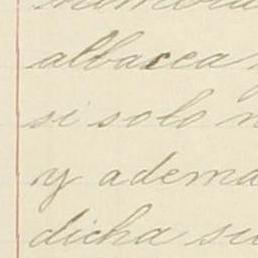 albacea
si solo
y adema
dicha su